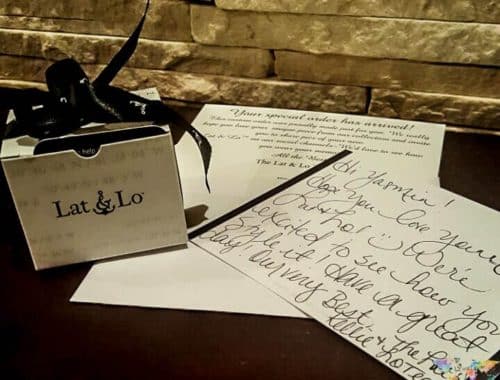 help
Lat & Lo™
Your special order has arrived!
This custom order was proudly made just for you. We really
hope you love your unique piece from our collection and invite
you to share pics of your
Lat & Lo™
on our social channels. We'd love to see how
you wear yours
All the
The Lat & Lo
Hi Yasmin!
Hope you love your
Lat & Lo! :) We're
excited to see how you
style it! Have a great
day! Our very Best,
Kellie & the Lat
& Lo Team